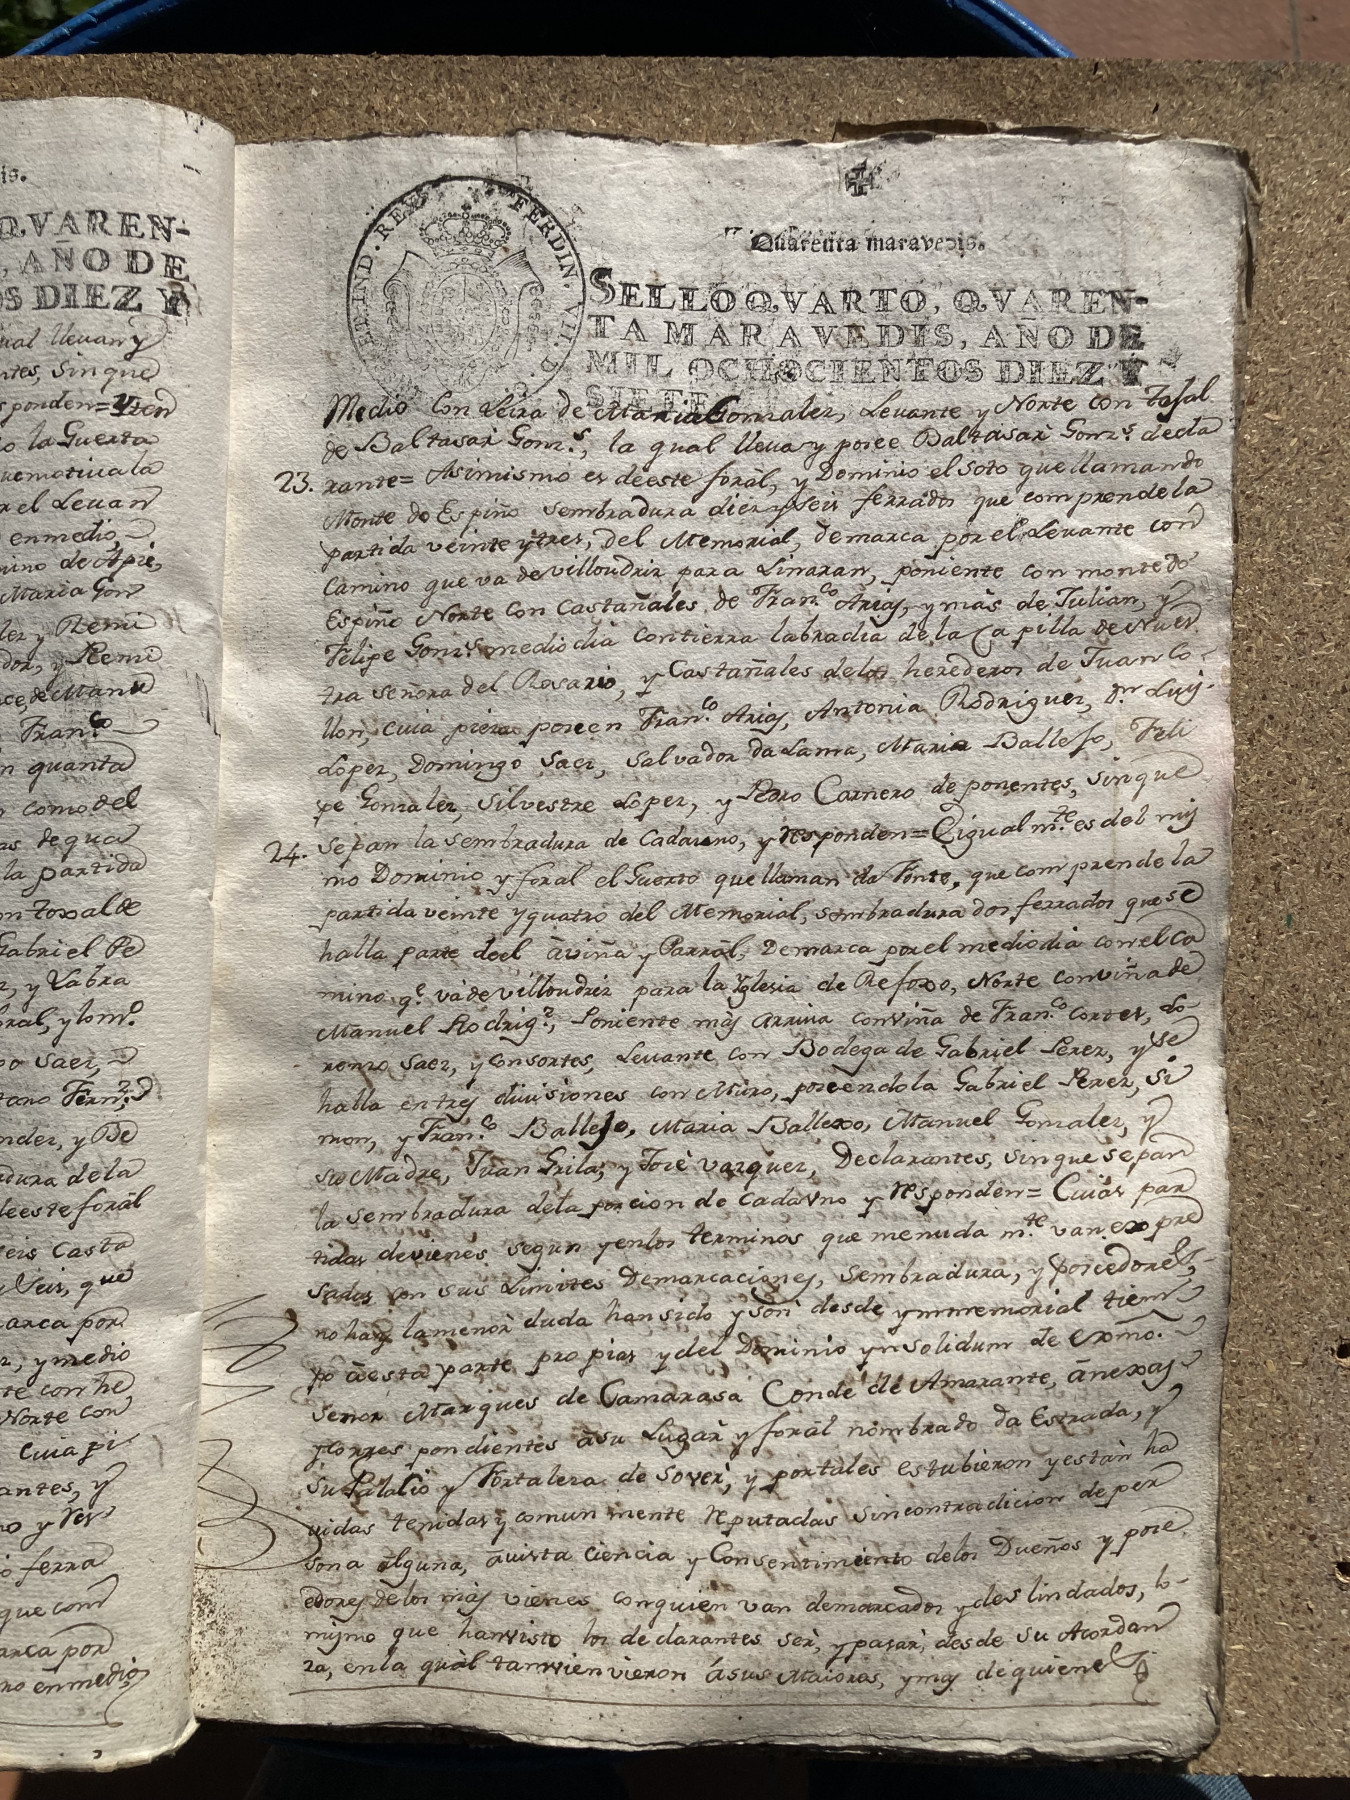 is.
QVAREN-
, AÑO DE
OS DIEZ Y
ual lleuan y
ntes, sin que
sponden = Yten
o la Guerta
uemotiua la
r el Leuan
enmedio,
mino de Apie,
Maria Gon
ler y Remi
dor, y Remi
Fran.co
n quanta
n como del
as de qua
la partida
on toxal de
Gabriel Pe
z, y Labra
oral, y lom.o
po Saez,
tano Fern.z
ndez, y Be
adura de la
deeste forál
eis Casta
y Seis, que
arca por
z, y medio
te con he
Norte con
Cuia pi
antes, y
no y res
io ferra
que com
arca por
no enmedio,
ET IND. REX FERDIN. VII. D.
Quarenta maravedis.
SELLO QVARTO, QVAREN-
TA MARAVEDIS, AÑO DE
MIL OCHOCIENTOS DIEZ Y
SIETE.
Medio Con Leira de Maria Gonzalez, Levante y Norte con Tasal
de Baltasar Gonz.s, la qual lleua y posee Baltasar Gonz.s decla
23. rante = Asimismo es deeste forál, y Dominio el Soto que llaman do
Monte do Espiño sembradura diez y seis ferrados que comprende la
partida veinte y tres, del Memorial, demarca por el Levante con
Camino que va de villoudriz para Linaran, poniente con monte do
Espiño Norte con Castañales de Fran.co Arias, y màs de Julian, y
Felipe Gonz.s mediodia con tierra labradia de la Capilla de Nues
tra señora del Rosario, y Castañales delos herederos de Juan Co-
llon, cuia pieza poseen Fran.co Arias, Antonia Rodriguez, D.n Luis
Lopez, Domingo Saez, Salvador da Lama, Maria Ballejo, Feli
pe Gonzalez, Silvestre Lopez, y Pedro Carnero de ponentes, sin que
24. sepan la sembradura de Cadauno, y responden = Eigual m.te es del mis
mo Dominio y forál el Guerto que llaman da Fonte, que comprende la
partida veinte y quatro del Memorial, sembradura dos ferrados que se
halla parte deel áviña y Parrál, Demarca por el mediodia con el Ca
mino q.e và de villoudriz para la Yglesia de Refoxo, Norte con viña de
Manuel Rodrig.z, Poniente màs arriva con viña de Fran.co Cortes, Lo-
renzo Saez, y consortes, Levante con Bodega de Gabriel Perez, y se
halla en tres divisiones con Muro, poseendola Gabriel Perez, Si
mon, y Fran.co Ballejo, Maria Ballexo, Manuel Gonzalez, y
su Madre, Juan Grila, y José vazquez, Declarantes, sin que sepan
la sembradura dela porcion de cadauno y responden = Cuias par
tidas devienes segun y enlos terminos que menuda m.te van expre
sadas con sus Limites Demarcaciones, sembradura, y poseedores,
no hay la menor duda han sido y son desde ynmemorial tiem
po áesta parte propias y del Dominio ynsolidum de Exmo.
Senor Marques de Camarasa Conde de Amarante, ánexas
y corres pondientes ásu Lugar y forál nombrado da Estrada, y
su Palacio y Fortaleza de Sover, y portales estubieron y están ha
uidas tenidas y comun mente reputadas sin contradicion de per
sona alguna, ávista ciencia y Consentimiento delos Dueños y pose
edores delos màs vienes conquien van demarcados y des lindados, lo
mismo que hanvisto los declarantes ser, y pasar, desde su Acordan
za, en la quál tanvien vieron ásus Maiores, y mas de quienes